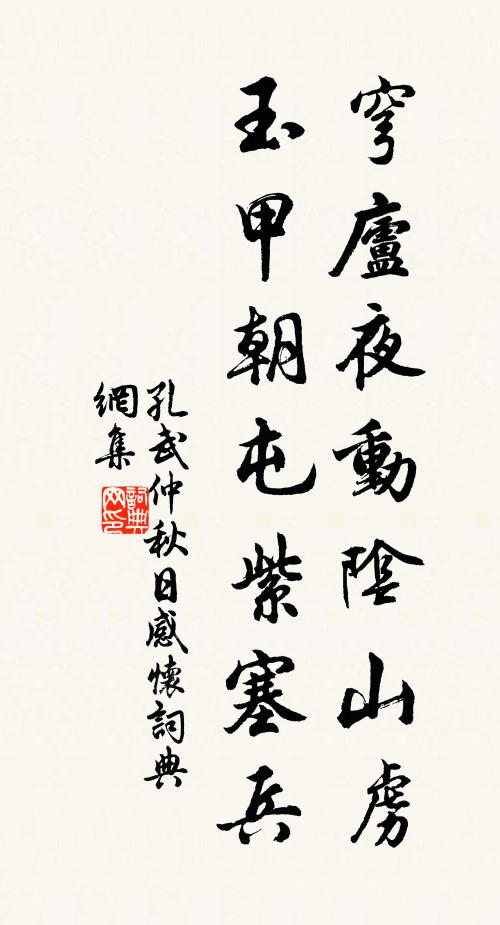 穹廬夜動陰山虜
玉甲朝屯紫塞兵
孔武仲秋日感懷詞典
網集
詞典
网印